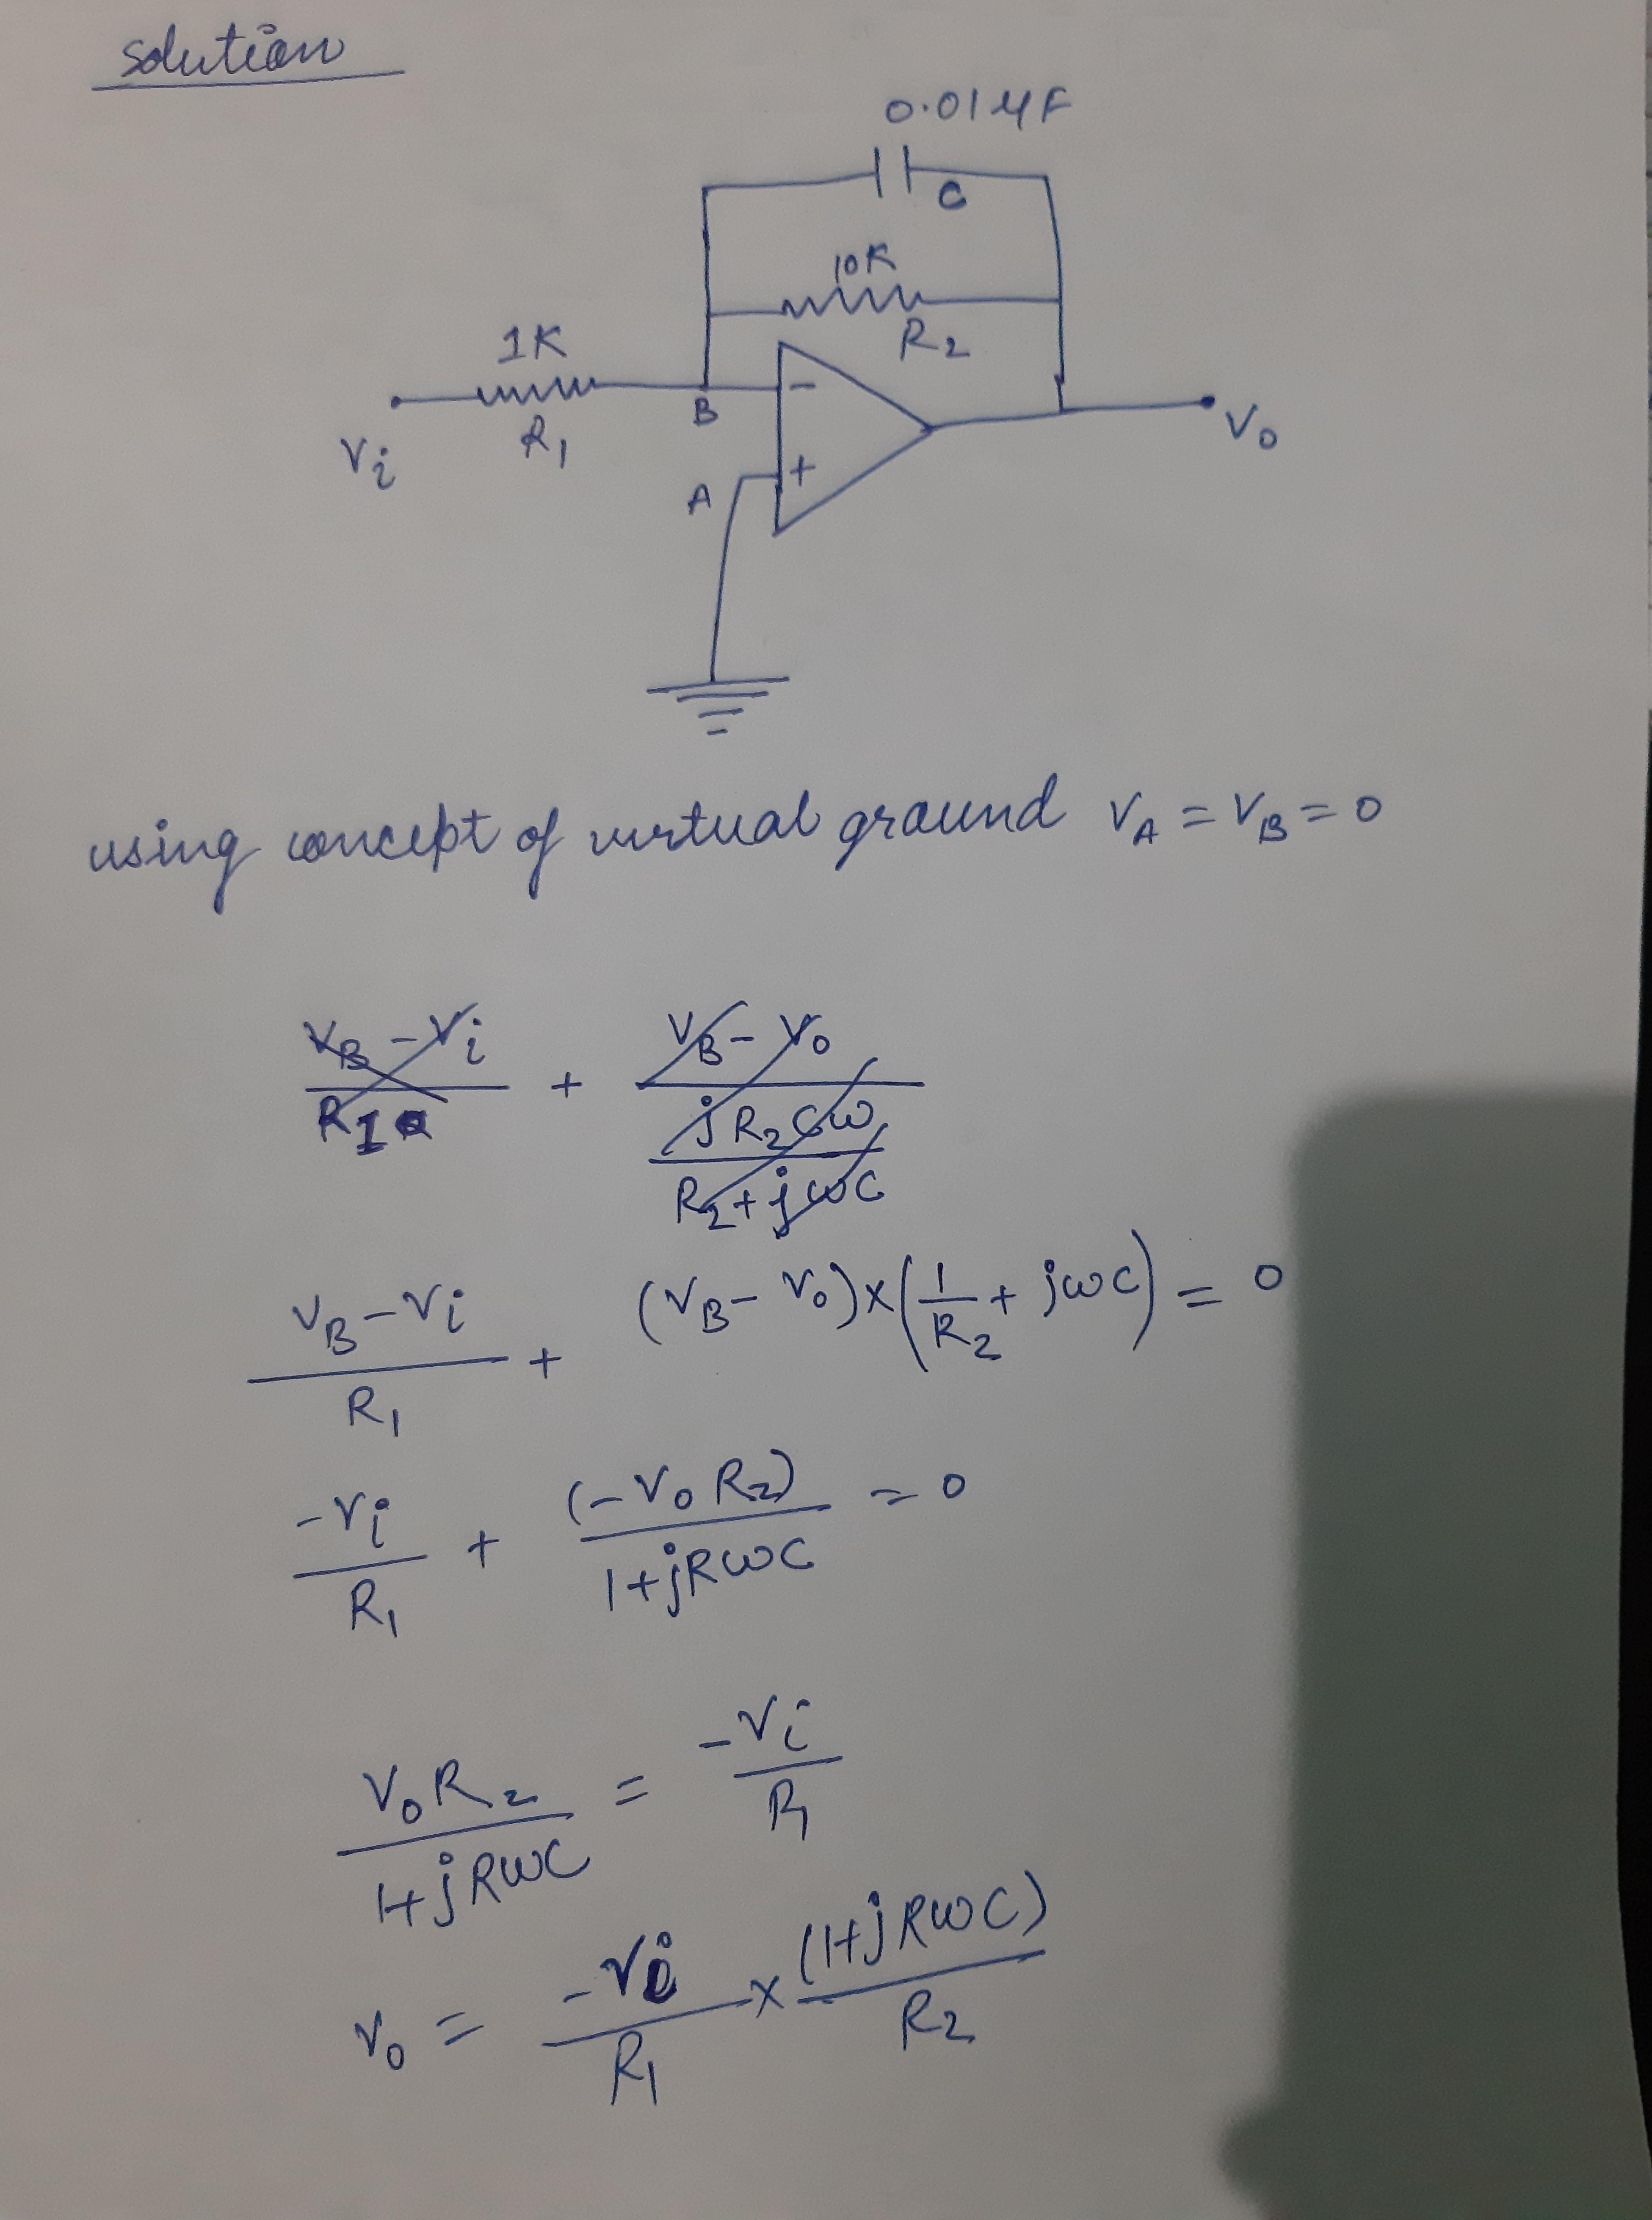 solution
0.01μF
C
10K
R2
1K
R1
B
-
Vi
Vo
A
+
using concept of virtual ground VA = VB = 0
(VB - Vi)/R1 + (VB - Vo)/(jR2Cω/(R2+jωC))
(VB - Vi)/R1 + (VB - Vo)×(1/R2 + jωC) = 0
-Vi/R1 + (-VoR2)/(1+jRωC) = 0
VoR2/(1+jRωC) = -Vi/R1
Vo = -Vi/R1 × (1+jRωC)/R2